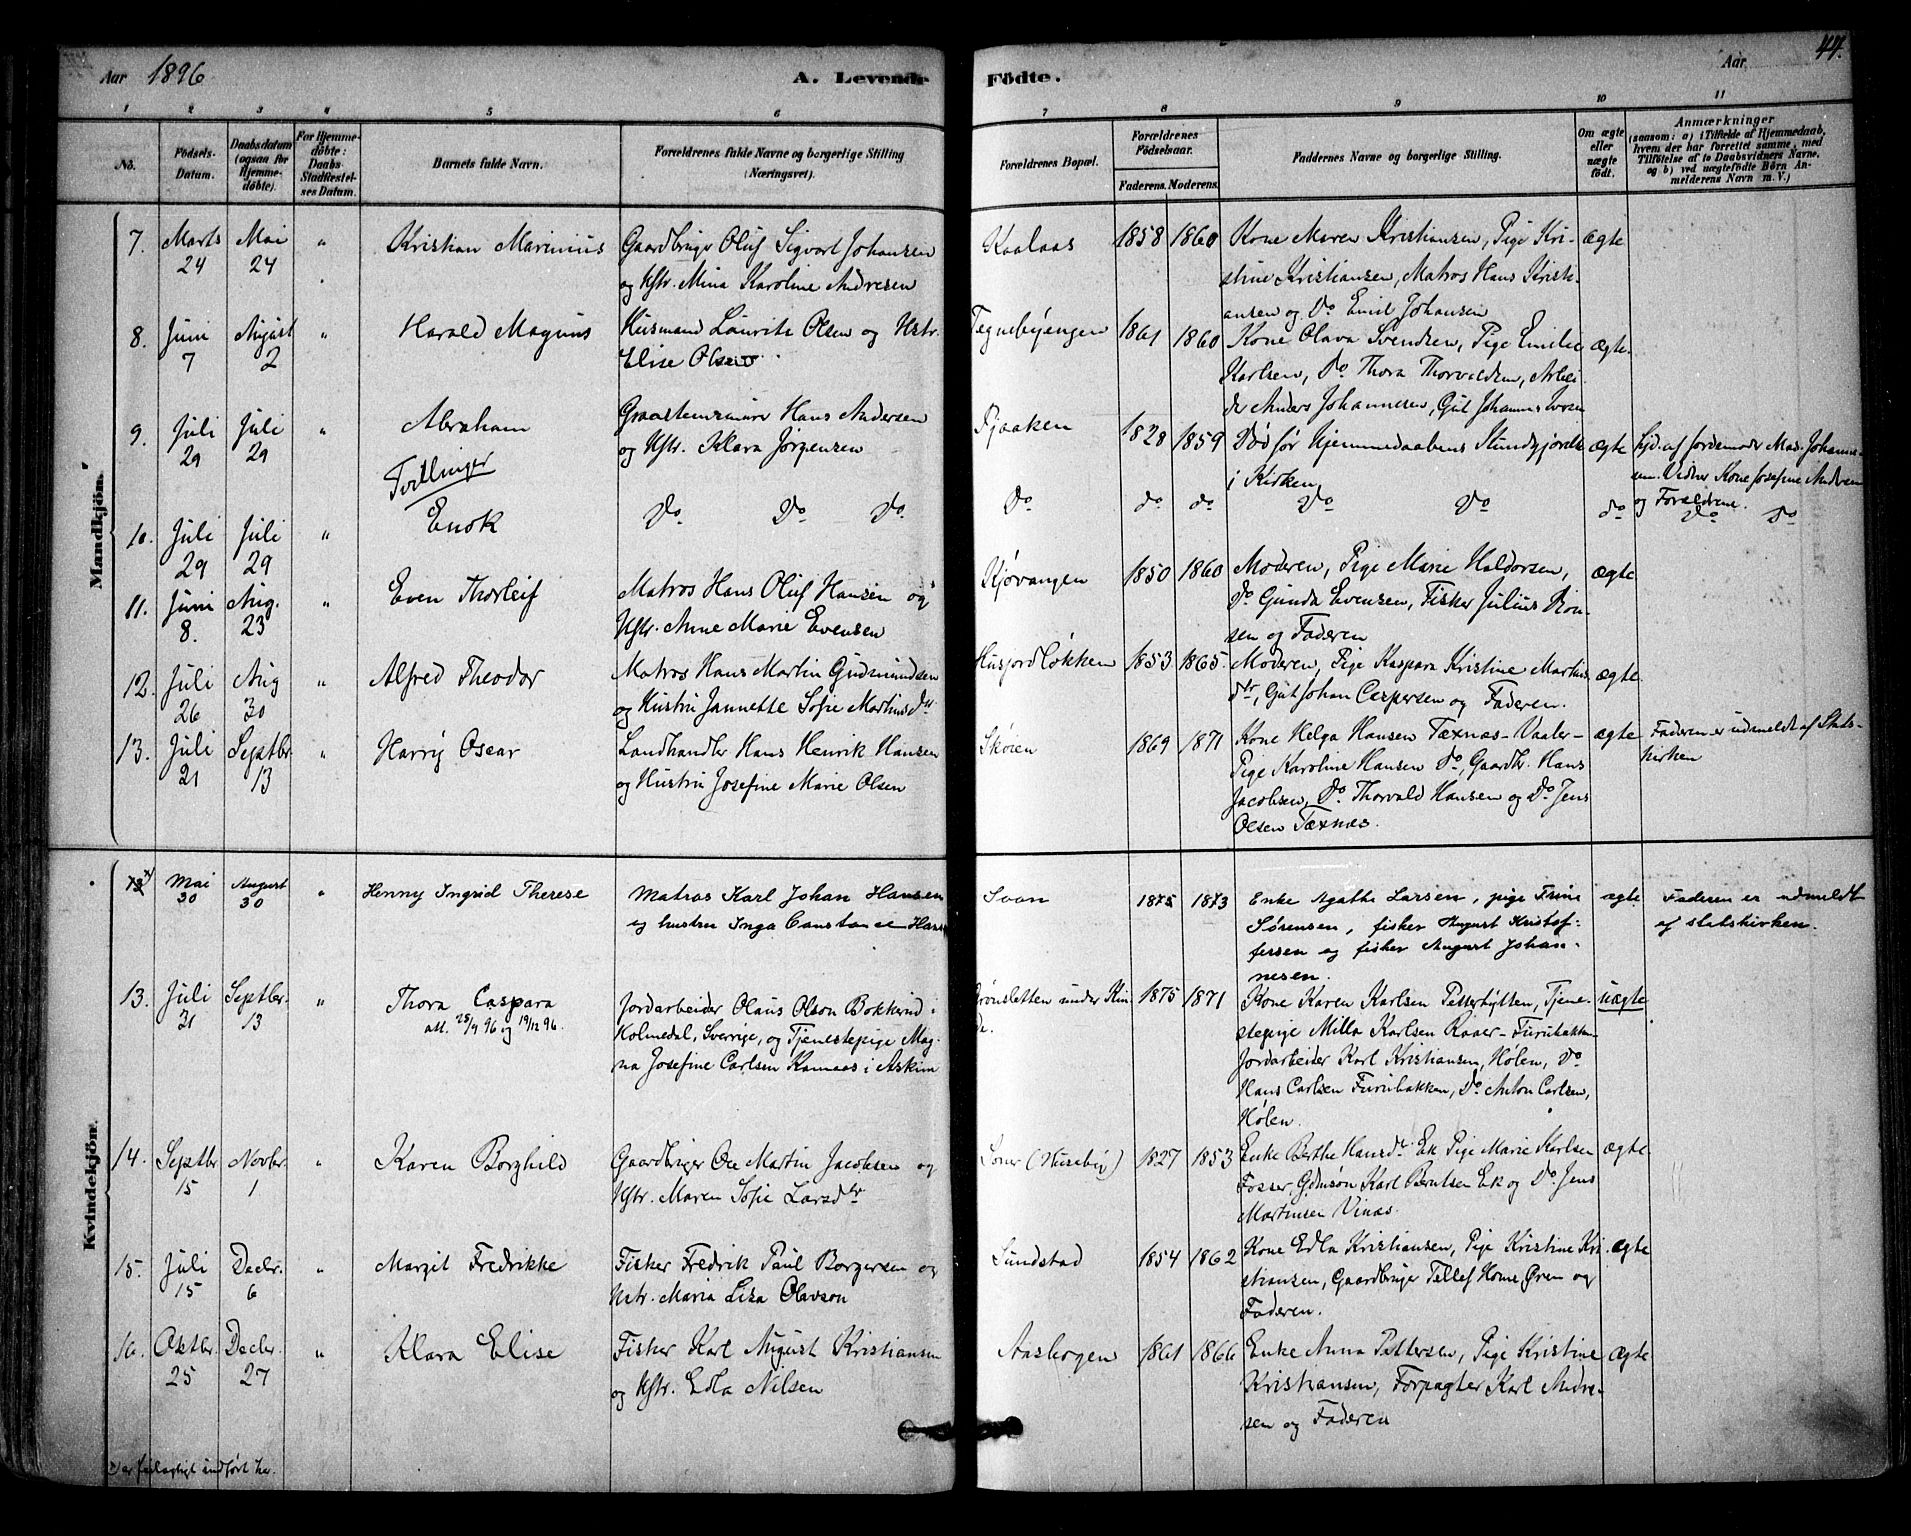 Aar 1896 A. Levende Födte. Aar 44.
1 2 3 4 5 6 7 8 9 10 11
No. Födsels-Datum. Daabsdatum (ogsaa for Hjemmedöbte). For Hjemmedöbte: Daabs-Stadfæstelses Datum. Barnets fulde Navn. Forældrenes fulde Navne og borgerlige Stilling (Næringsvei). Forældrenes Bopæl. Forældrenes Fødselsaar. Faderens. Moderens. Faddernes Navne og borgerlige Stilling. Om ægte eller uægte födt. Anmærkninger (saasom: a) i Tilfælde af Hjemmedaab, hvem der har forrettet samme, med Tilföielse af to Daabsvidners Navne, og b) ved uægtefödte Börn Anmelderens Navn m. V.)
Mandkjön.
7. Marts 24 Mai 24 " Kristian Marinius Gaardbruger Oluf Sigvart Johansen
og Hstr. Mina Karoline Andresen
Kaalaas 1858 1860 Kone Maren Kristiansen, Pige Kri-
stine Kristiansen, Matros Hans Kristi-
ansen og Do Emil Johansen
ægte
8. Juni 7 August 2 " Harald Magnus Husmand Laurits Olsen og Hstr.
Elise Olsen
Tegnebyengen 1861 1860 Kone Olava Svendsen, Pige Emilie
Karlsen, Do Thora Thorvaldsen, Arbei-
der Anders Johannesen, Gut Johannes
ægte.
9. Juli 29 Juli 29 " Abraham Graastensminer Hans Andersen
og Hstr. Klara Jørgensen
1828 1859 Død før Hjemmedaabens Stadfæstelse
i Kirken
ægte Hjd. af Jordemoder Mad. Johanne-
sen. Vidner Kone Josefine Andresen
og Forældrene.
Tvillinger
10. Juli 29 Juli 29 " Enok Do Do Do Do do do Do Do do Do Do
11. Juni 8. Aug. 23 " Even Thorleif Matros Hans Oluf Hansen og
Hstr. Anne Marie Evensen
Kjøvangen 1850 1860 Moderen, Pige Marie Haldorsen,
Do Gunda Evensen, Fisker Julius
og Faderen
ægte
12. Juli 26 Aug 30 " Alfred Theodor Matros Hans Martin Gudmundsen
og Hustru Jannette Sofie Martinsdtr
Husjordløkken 1853 1865. Moderen, Pige Kaspara Kristine Martins-
dtr, Gut Johan Caspersen og Faderen.
ægte.
13. Juli 21 Septbr. 13 " Harry Oscar Landhandler Hans Henrik Hansen
og Hustru Josefine Marie Olsen
Skøien 1869 1871 Kone Helga Hansen Texnæs-Vaaler-
Pige Karoline Hansen Do, Gaardbr. Hans
Jacobsen, Do Thorvald Hansen og Do Jens
Olsen Texnæs.
ægte Faderen er udmeldt af Stats-
kirken
Kvindekjön.
Mai 30 August 30 " Henny Ingrid Therese Matros Karl Johan Hansen
og hustru Inga Constanse
Soon 1875 1873 Enke Agathe Larsen, pige Trine
Sørensen, fisker August Kristof-
fersen og fisker August Johan-
nesen.
ægte Faderen er udmeldt
af statskirken.
13. Juli 31 Septbr. 13 " Thora Caspara
att. 25/9 96 og 19/12 96.
Jordarbeider Olaus Olson Bokkerud i
Holmedal, Sverrige, og Tjenestepige Mag-
na Josefine Carlsen Kamaas i Askim
1875 1871 Kone Karen Karlsen Pesserhytten, Tjene-
stepige Milla Karlsen Raaer-Furubakken
Jordarbeider Karl Kristiansen, Hølen, Do
Hans Carlsen Furubakken, Do Anton Carlsen,
Hølen.
uægte
14. Septbr. 15 Novbr. 1 " Karen Borghild Gaardbruger Ole Martin Jacobsen og
Hstr. Maren Sofie Larsdtr
Soner (Huseby) 1827 1853 Enke Berthe Hansdtr Ek Pige Marie Karlsen
Fosser, Gdmsøn Karl Berntsen Ek og Do Jens
Martinsen Vinæs.
ægte
15. Juli 15 Decbr. 6 " Margit Fredrikke Fisker Fredrik Paul Borgersen og
Hstr. Maria Lisa Olavson
Sundstad 1854 1862 Kone Edla Kristiansen, Pige Kristine Kri-
stiansen, Gaardbruger Tellef Home Øren og
Faderen.
ægte
16. Oktbr. 25 Decbr. 27 " Klara Elise Fisker Karl August Kristiansen
og Hstr. Edla Nilsen
Aasbogen 1861 1866 Enke Anna Pettersen, Pige Kristine
Kristiansen, Forpagter Karl Andre-
sen og Faderen
ægte
er feilagtigt indført her.